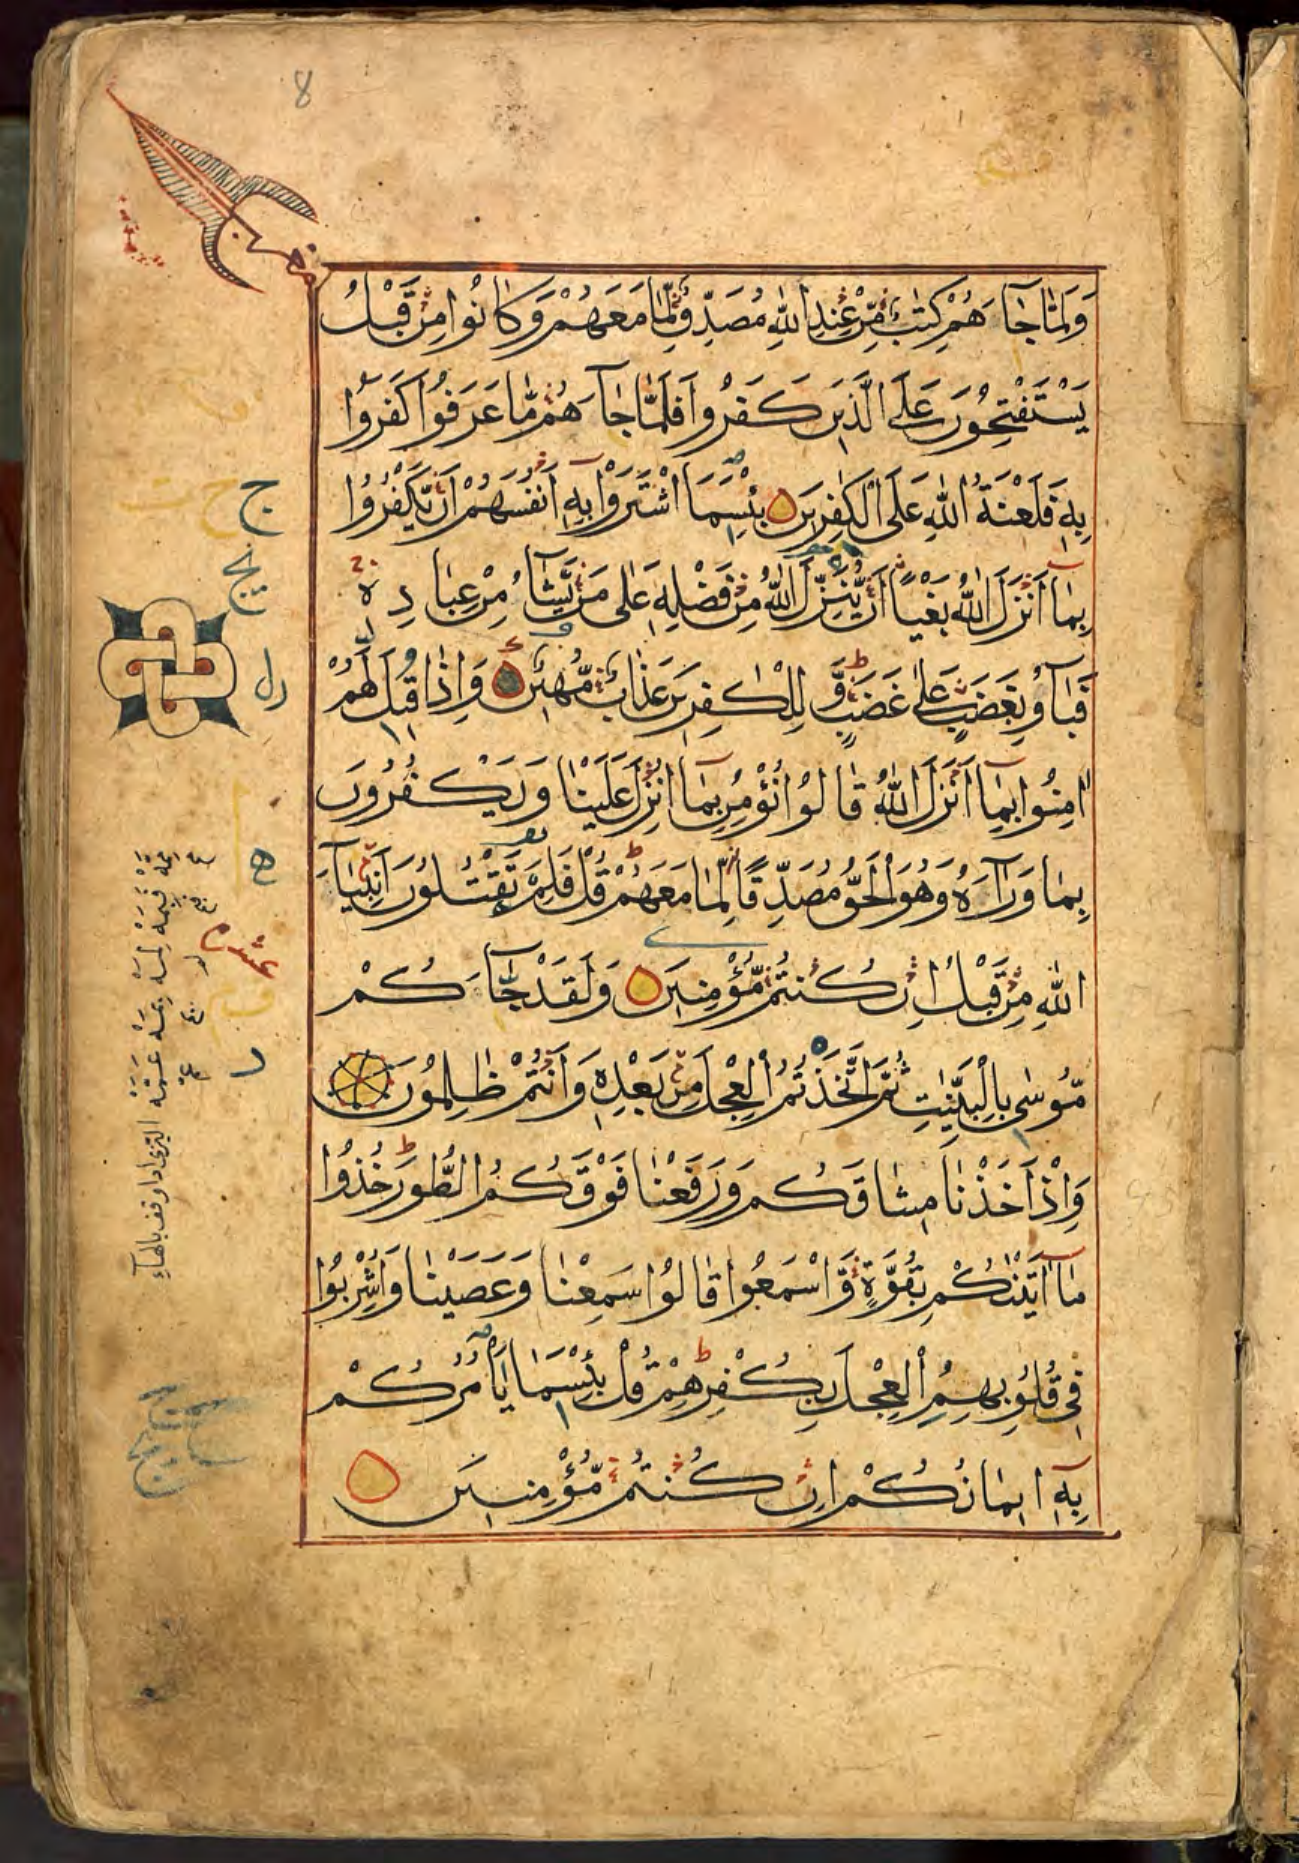 8
وَلَمَّا جَآءَهُمْ كِتٰبٌ مِّنْ عِنْدِ اللّٰهِ مُصَدِّقٌ لِّمَا مَعَهُمْ وَكَانُوا مِنْ قَبْلُ
يَسْتَفْتِحُونَ عَلَى الَّذِينَ كَفَرُوا فَلَمَّا جَآءَهُمْ مَّا عَرَفُوا كَفَرُوا
بِهٖ فَلَعْنَةُ اللّٰهِ عَلَى الْكٰفِرِينَ بِئْسَمَا اشْتَرَوْا بِهٖٓ اَنْفُسَهُمْ اَنْ يَّكْفُرُوا
بِمَآ اَنْزَلَ اللّٰهُ بَغْيًا اَنْ يُّنَزِّلَ اللّٰهُ مِنْ فَضْلِهٖ عَلٰى مَنْ يَّشَآءُ مِنْ عِبَادِهٖ
فَبَآءُو بِغَضَبٍ عَلٰى غَضَبٍ وَّ لِلْكٰفِرِينَ عَذَابٌ مُّهِينٌ وَاِذَا قِيلَ لَهُمْ
اٰمِنُوا بِمَآ اَنْزَلَ اللّٰهُ قَالُوا نُؤْمِنُ بِمَآ اُنْزِلَ عَلَيْنَا وَيَكْفُرُونَ
بِمَا وَرَآءَهُ وَهُوَ الْحَقُّ مُصَدِّقًا لِّمَا مَعَهُمْ قُلْ فَلِمَ تَقْتُلُونَ اَنْبِيَآءَ
اللّٰهِ مِنْ قَبْلُ اِنْ كُنْتُمْ مُّؤْمِنِينَ وَلَقَدْ جَآءَكُمْ
مُّوسٰى بِالْبَيِّنٰتِ ثُمَّ اتَّخَذْتُمُ الْعِجْلَ مِنْ بَعْدِهٖ وَاَنْتُمْ ظٰلِمُونَ
وَاِذْ اَخَذْنَا مِيثَاقَكُمْ وَرَفَعْنَا فَوْقَكُمُ الطُّورَ خُذُوا
مَآ اٰتَيْنٰكُمْ بِقُوَّةٍ وَّاسْمَعُوا قَالُوا سَمِعْنَا وَعَصَيْنَا وَاُشْرِبُوا
فِي قُلُوبِهِمُ الْعِجْلَ بِكُفْرِهِمْ قُلْ بِئْسَمَا يَاْمُرُكُمْ
بِهٖٓ اِيمَانُكُمْ اِنْ كُنْتُمْ مُّؤْمِنِينَ